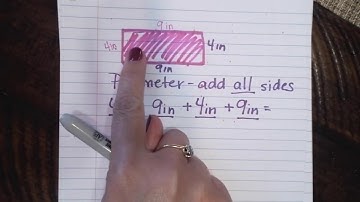 9in
4in 4in
9in
Perimeter - add all sides
9in + 4in + 9in =